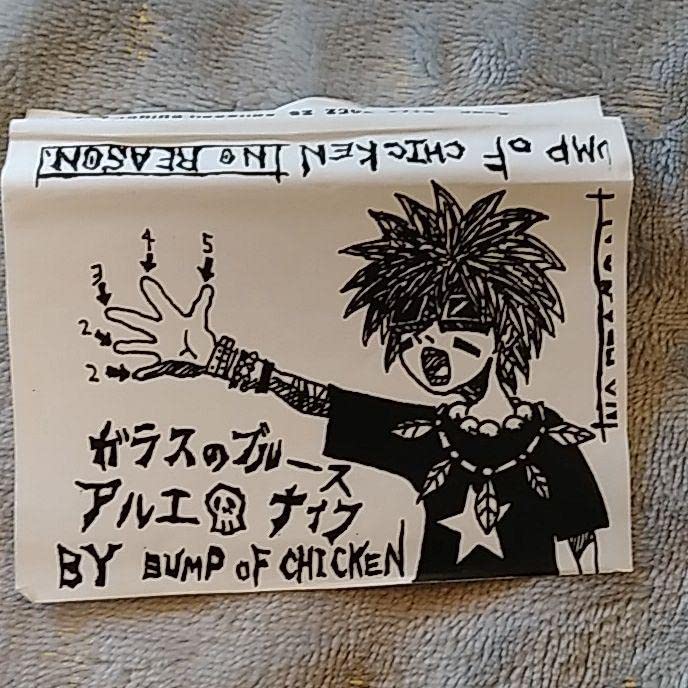 MP OF CHICKEN NO REASON
4
5
3
2
2
ガラスのブルース
アルエ ナイフ
BY BUMP OF CHICKEN